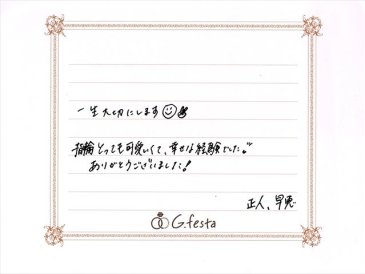 一生大切にします
指輪とっても可愛いくて、幸せな経験でした。
ありがとうございました!
正人、早恵
G.festa